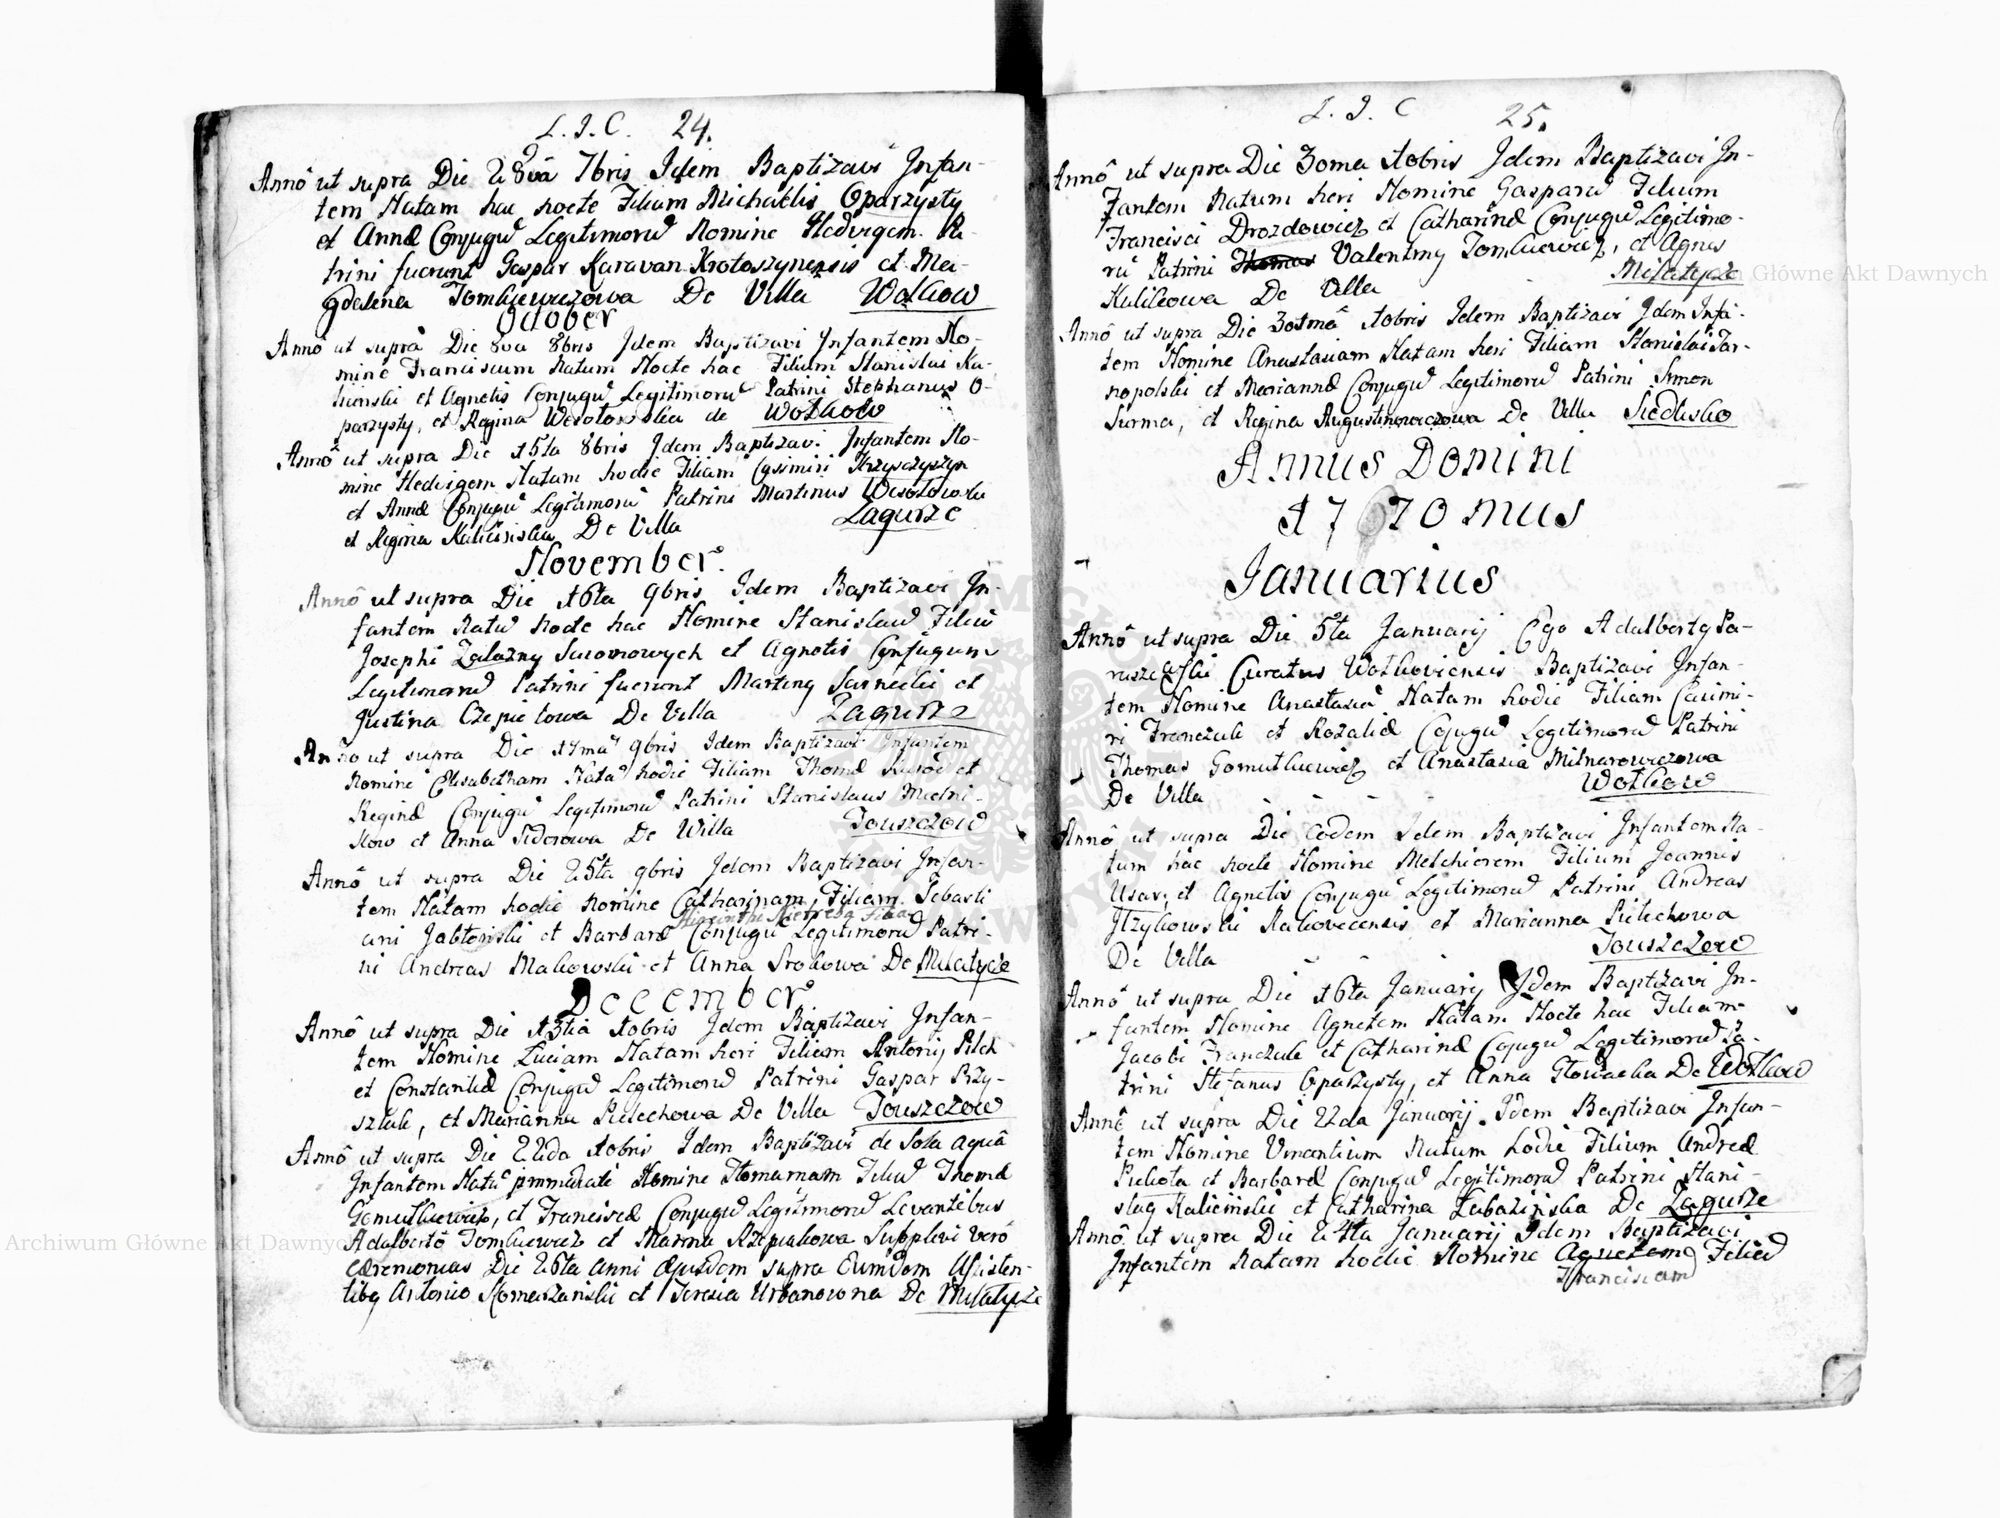 L. J. C. 24.
Annô ut supra Die 28va 7bris Idem Baptizavi Infan-
tem Natam hac nocte Filiam Michaelis Oparzysty
et Annæ Conjugu Legitimoru Nomine Hedvigem. Pa-
trini fuerunt Gaspar Karavan Krotoszynensis et Ma-
gdalena Tomkiewiczowa De Villa Wołkow
October
Annô ut supra Die 8va 8bris Idem Baptizavi Infantem No-
mine Franciscum Natum Nocte hac Filium Stanislai Ka-
licinski et Agnetis Conjugu Legitimoru Patrini Stephanus O-
parzysty, et Regina Wesołowska de Wołkow
Annô ut supra Die 15ta 8bris Idem Baptizavi Infantem No-
mine Hedvigem Natam hodie Filiam Casimiri
et Annæ Conjugu Legitimoru Patrini Martinus Wesołowski
et Regina Kalicinska De Villa Zagurze
November.
Annô ut supra Die 16ta 9bris Idem Baptizavi In-
fantem Natu nocte hac Nomine Stanislau Filiu
Josephi Zalazny et Agnetis Conjugum
Legitimoru Patrini fuerunt Marting Sarnecki et
Justina Czepiełowa De Villa Zagurze
Anno ut supra Die 17ma 9bris Idem Baptizavi Infantem
Nomine Elisabetham Nata hodie Filiam Thomæ et
Reginæ Conjugu Legitimoru Patrini Stanislaus Mielni-
kow et Anna Sidorowa De Willa Touszczow
Annô ut supra Die 25ta 9bris Idem Baptizavi Infan-
tem Natam hodie Nomine Catharinam, Filiam Sebasti
ani Jabłonski et Barbaræ Conjugu Legitimoru Patri-
ni Andreas Makowski et Anna Srokowa De Milatycze
December
Annô ut supra Die 13tia Xobris Idem Baptizavi Infan-
tem Nomine Luciam Natam heri Filiam Antonij Pilch
et Constantiæ Conjugu Legitimoru Patrini Gaspar Przy-
szlak, et Marianna Pielechowa De Villa Touszczow
Annô ut supra Die 22da Xobris Idem Baptizavi de Sola aquâ
Infantem Natu immediatè Nomine Filiu Thomæ
Gomułkiewicz, et Franciscæ Conjugu Legitimoru Levantibus
Adalbertô Tomkiewicz et Marina Rzepiakowa Supplevi verô
cæremonias Die 26ta anni ejusdem supra Eumdem Assisten-
tibg Antonio Komarzanski et Teresia Urbanowna De Milatycze
L. J. C 25.
Annô ut supra Die 30ma Xobris Idem Baptizavi In-
fantem Natum heri Nomine Gasparu Filium
Francisci Drozdowicz et Catharinæ Conjugu Legitimo-
ru Patrini Thomas Valentiny Tomkiewicz, et Agnes
Kulikowa De Villa Milatycze
Annô ut supra Die Xobris Idem Baptizavi Idem Infa-
tem Nomine Anastasiam Natam heri Filiam Stanislai Tar-
nopolski et Mariannæ Conjugu Legitimoru Patrini Simon
Surma, et Regina Augustinowiczowa De Villa Siedlisko
Annus Domini
1770mus
Januarius
Annô ut supra Die 5ta Januarij Ego Adalbertg Pa-
ruszewski Curatus Wołkoviensis Baptizavi Infan-
tem Nomine Anastasia Natam hodie Filiam Casimi-
ri Franczuk et Rozaliæ Cojugu Legitimoru Patrini
Thomas Gomułkiewicz et Anastasia Milnarowiczowa
De Villa - - - - Wołkow
Annô ut supra Die Eodem Idem Baptizavi Infantem Na-
tum hac nocte Nomine Melchiorem Filium Joannis
Usar, et Agnetis Conjugu Legitimoru Patrini Andreas
et Marianna Pielechowa
De Villa - - - Touszczow
Annô ut supra Die 16ta Januarij Idem Baptizavi In-
fantem Nomine Agnetem Natam Nocte hac Filiam
Jacobi Franczuk et Catharinæ Cojugu Legitimoru Pa-
trini Stefanus Oparzysty, et Anna Głowacka De Wołkow
Annô ut supra Die 22da Januarij Idem Baptizavi Infan-
tem Nomine Vincentium Natum hodie Filium Andreæ
Piekota et Barbaræ Conjugu Legitimoru Patrini Stani-
slag Kalicinski et Catharina De Zagurze
Annô ut supra Die 24ta Januarij Idem Baptizavi
Infantem Natam hodie Nomine Agnetem Filia
Franciscam